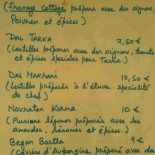 (Fromage Cottage préparé avec des oignons,
Poivron et épices)
DAL TARKA 7,50 €
(Lentilles préparés avec des oignons, tomates
et épices spéciales pour Tarka)
DAL Makhani 10,50 €
(Lentilles préparés à l'étuvé spécialité
de chef)
Novratan Korma 10 €
(Plusieurs légumes préparés avec les
amandes, raisins et épices)
Began Bartha 9 €
(Caviar d'Aubergine préparé avec des